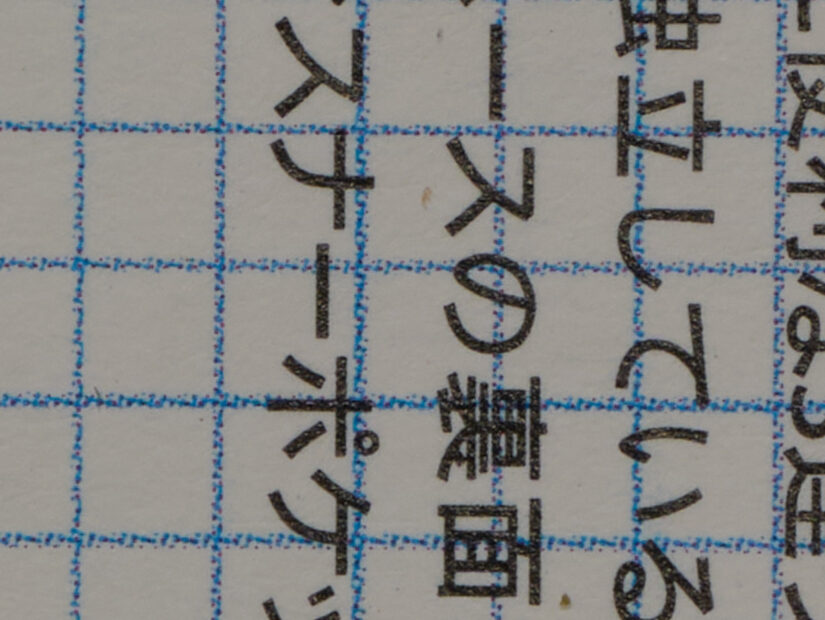 独立している
ースの裏面
スナーポケッ